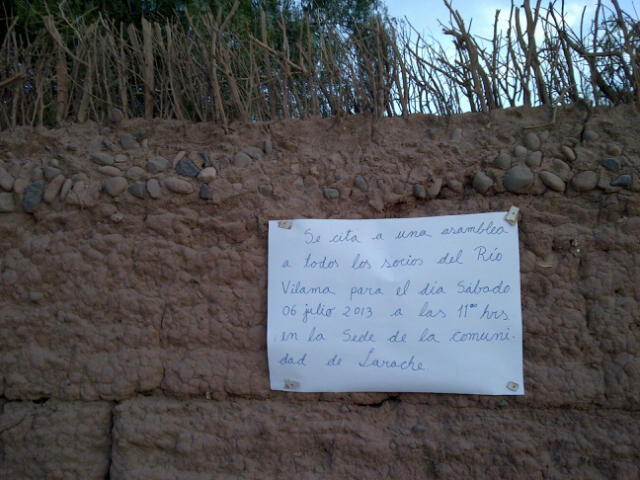 Se cita a una asamblea
a todos los socios del Río
Vilama para el día Sábado
06 julio 2013 a las 11⁰⁰ hrs
en la Sede de la comuni-
dad de Larache